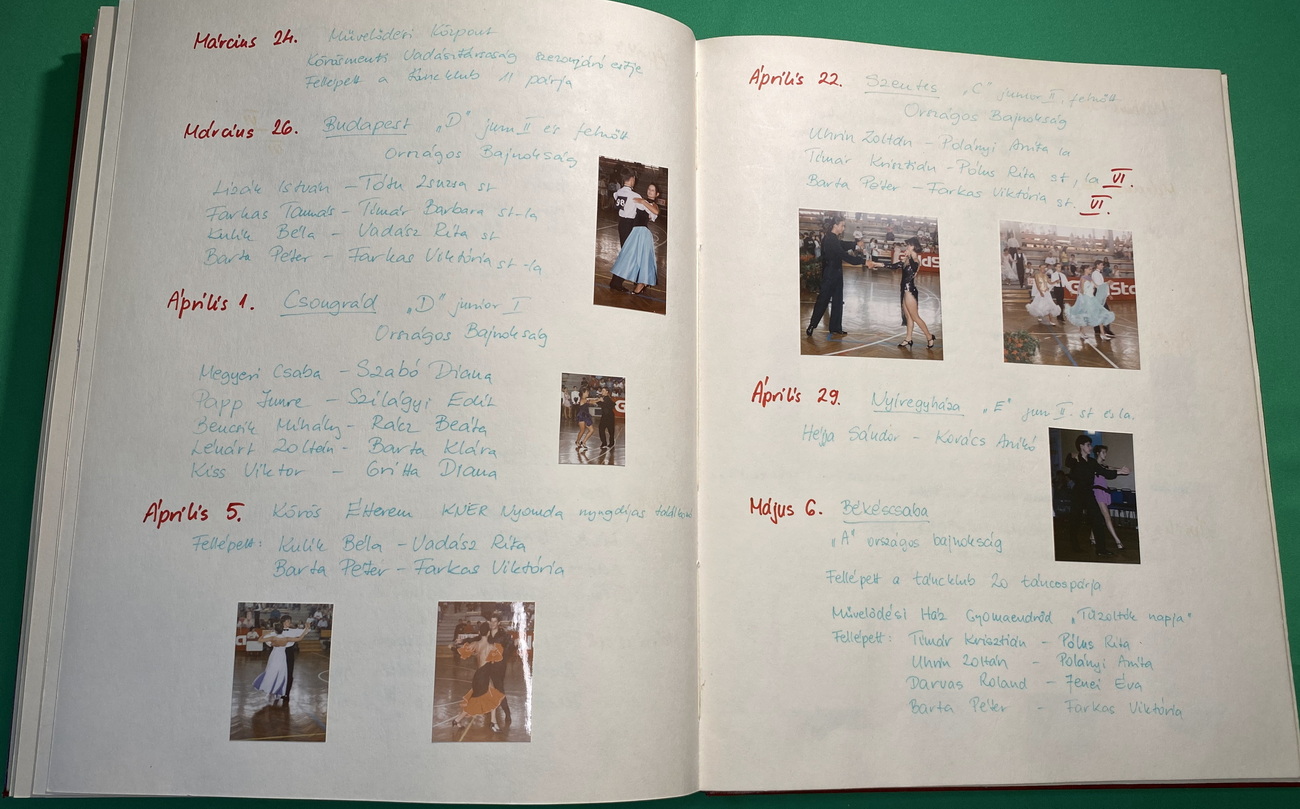 Március 24. Művelődési Központ
Körösmenti Vadásztársaság szezonzáró estje
Fellépett a táncklub 11 párja
Március 26. Budapest „D" jun. II és felnőtt
Országos Bajnokság
Lizák István – Tóth Zsuzsa st
Farkas Tamás – Tímár Barbara st-la
Kulik Béla – Vadász Rita st
Barta Péter – Farkas Viktória st-la
Április 1. Csongrád „D" junior I
Országos Bajnokság
Megyeri Csaba – Szabó Diana
Papp Imre – Szilágyi Edit
Bencsik Mihály – Rácz Beáta
Lénárt Zoltán – Barta Klára
Kiss Viktor – Gritta Diana
Április 5. Körös Étterem KNER Nyomda nyugdíjas
Fellépett: Kulik Béla – Vadász Rita
Barta Péter – Farkas Viktória
Április 22. Szentes „C" junior II. felnőtt
Országos Bajnokság
Uhrin Zoltán – Polányi Anita la
Tímár Krisztián – Pólus Rita st, la VI.
Barta Péter – Farkas Viktória st. VI.
Április 29. Nyíregyháza „E" jun II. st és la.
Héjja Sándor – Kovács Anikó
Május 6. Békéscsaba
„A" országos bajnokság
Fellépett a táncklub 20 táncospárja
Művelődési Ház Gyomaendrőd „Tűzoltók napja"
Fellépett: Tímár Krisztián – Pólus Rita
Uhrin Zoltán – Polányi Anita
Darvas Roland – Jenei Éva
Barta Péter – Farkas Viktória